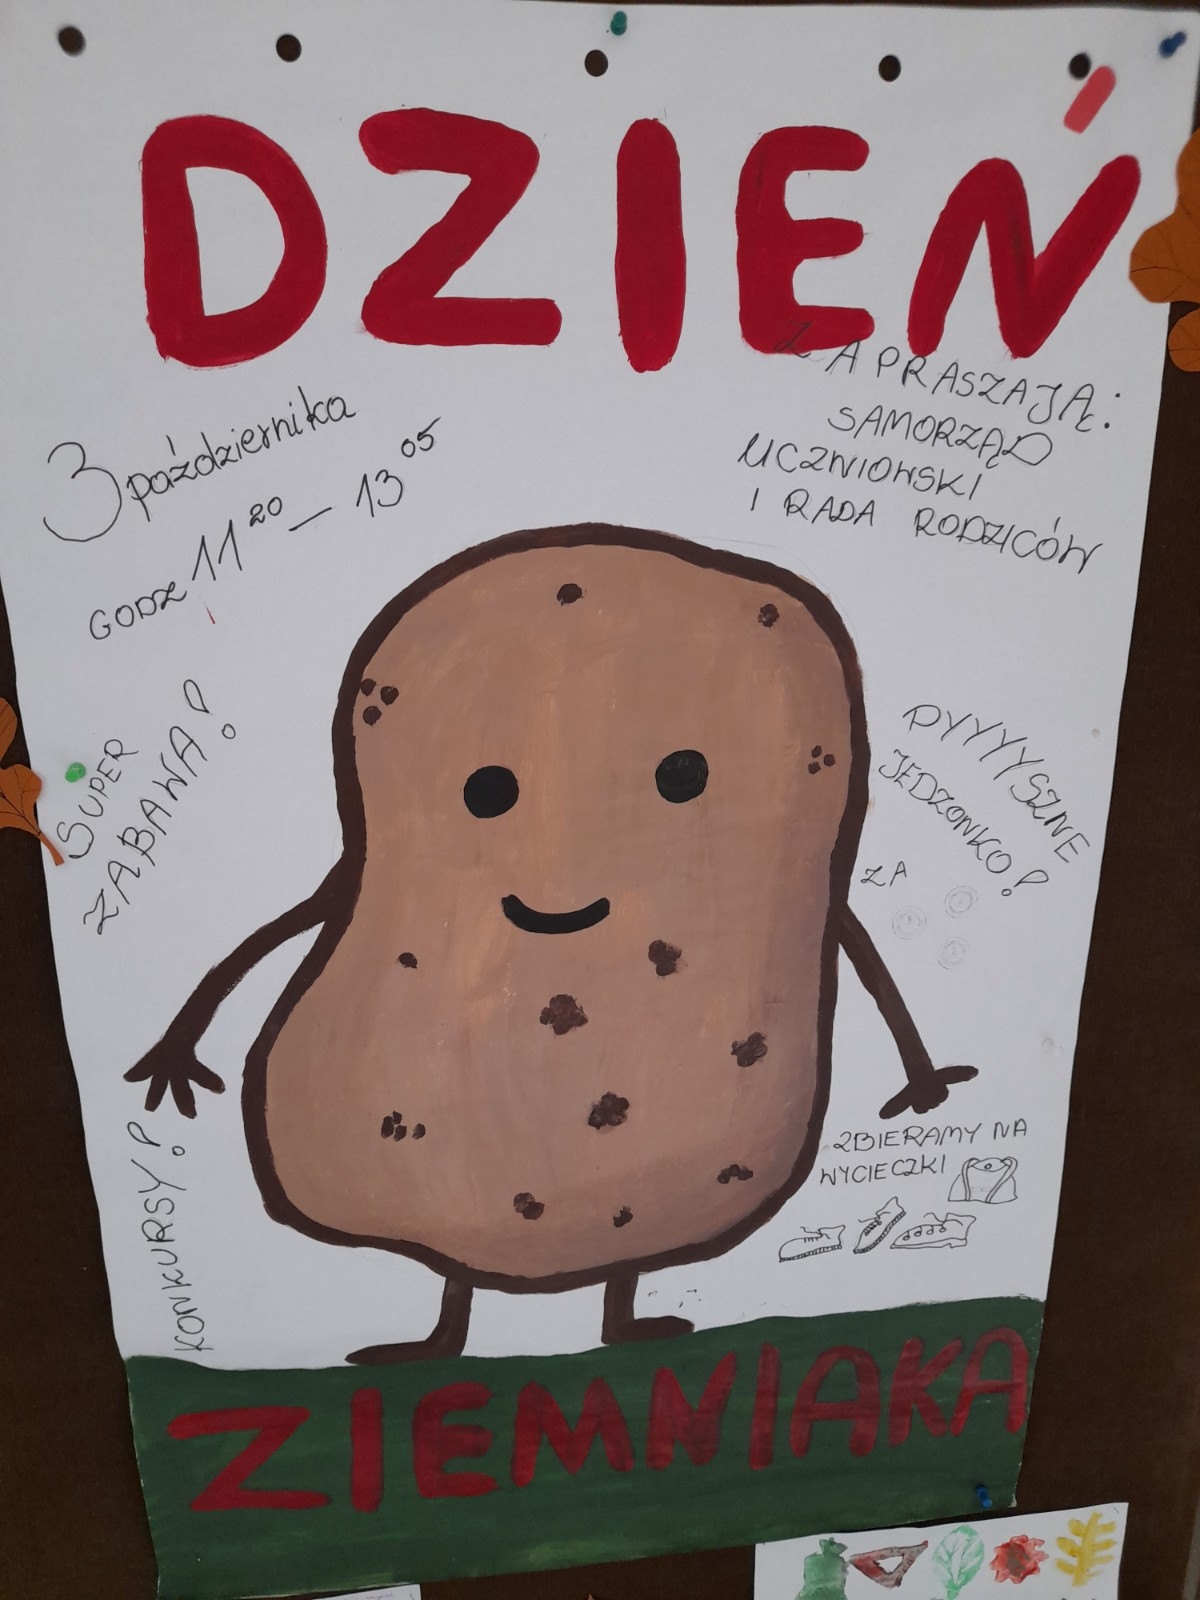 DZIEŃ
3 października
GODZ 11²⁰ – 13⁰⁵
ZAPRASZAJĄ:
SAMORZĄD
UCZNIOWSKI
I RADA RODZICÓW
SUPER
ZABAWA!
PYYYYSZNE
JEDZONKO!
ZA
KONKURSY!
ZBIERAMY NA
WYCIECZKI
ZIEMNIAKA